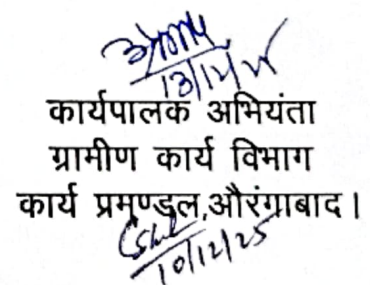 13/12/25
कार्यपालक अभियंता
ग्रामीण कार्य विभाग
कार्य प्रमण्डल,औरंगाबाद।
10/12/25